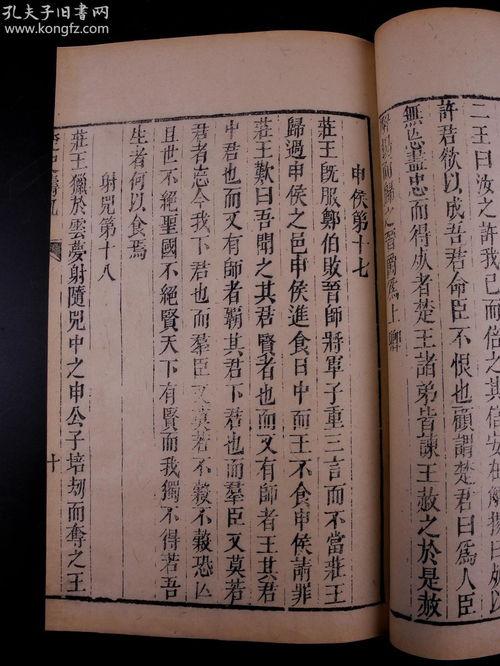 孔夫子旧书网
www.kongfz.com
二王曰汝之許我已而倍之其信安在解揚
許君欲以成吾君命臣不恨也顧謂楚君曰爲人臣
無忘盡忠而得死者楚王諸弟皆諫王赦之於是赦
解揚而歸之晉爵爲上卿
申侯第十七
莊王既服鄭伯敗晉師將軍子重三言而不當莊王
歸過申侯之邑申侯進食日中而王不食申侯請罪
莊王歎曰吾聞之其君賢者也而又有師者王其君
中君也而又有師者霸其君下君也而羣臣又莫若
君者亾今我下君也而羣臣又莫若不穀不穀恐亾
且世不絕聖國不絕賢天下有賢而我獨不得若吾
生者何以食焉
射兕第十八
莊王獵於雲夢射隨兕中之申公子培刼而奪之王
楚史檮杌
十